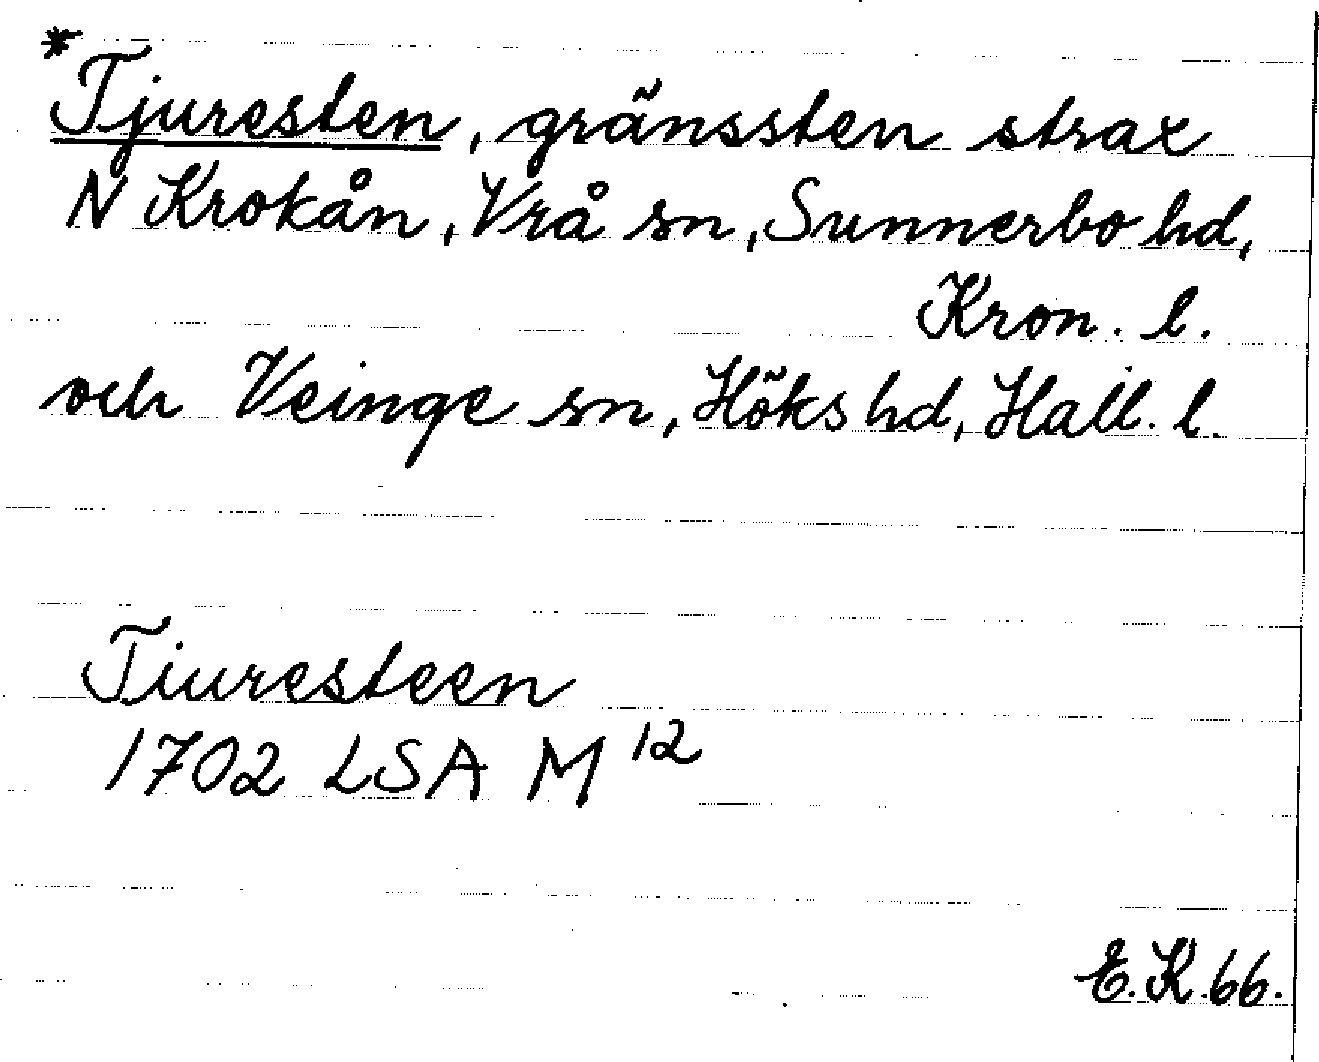 *Tjuresten, gränssten strax
N Krokån, Vrå sn, Sunnerbo hd,
Kron. l.
och Veinge sn, Höks hd, Hall. l.
Tiuresteen
1702 LSA M 12
E.K.66.